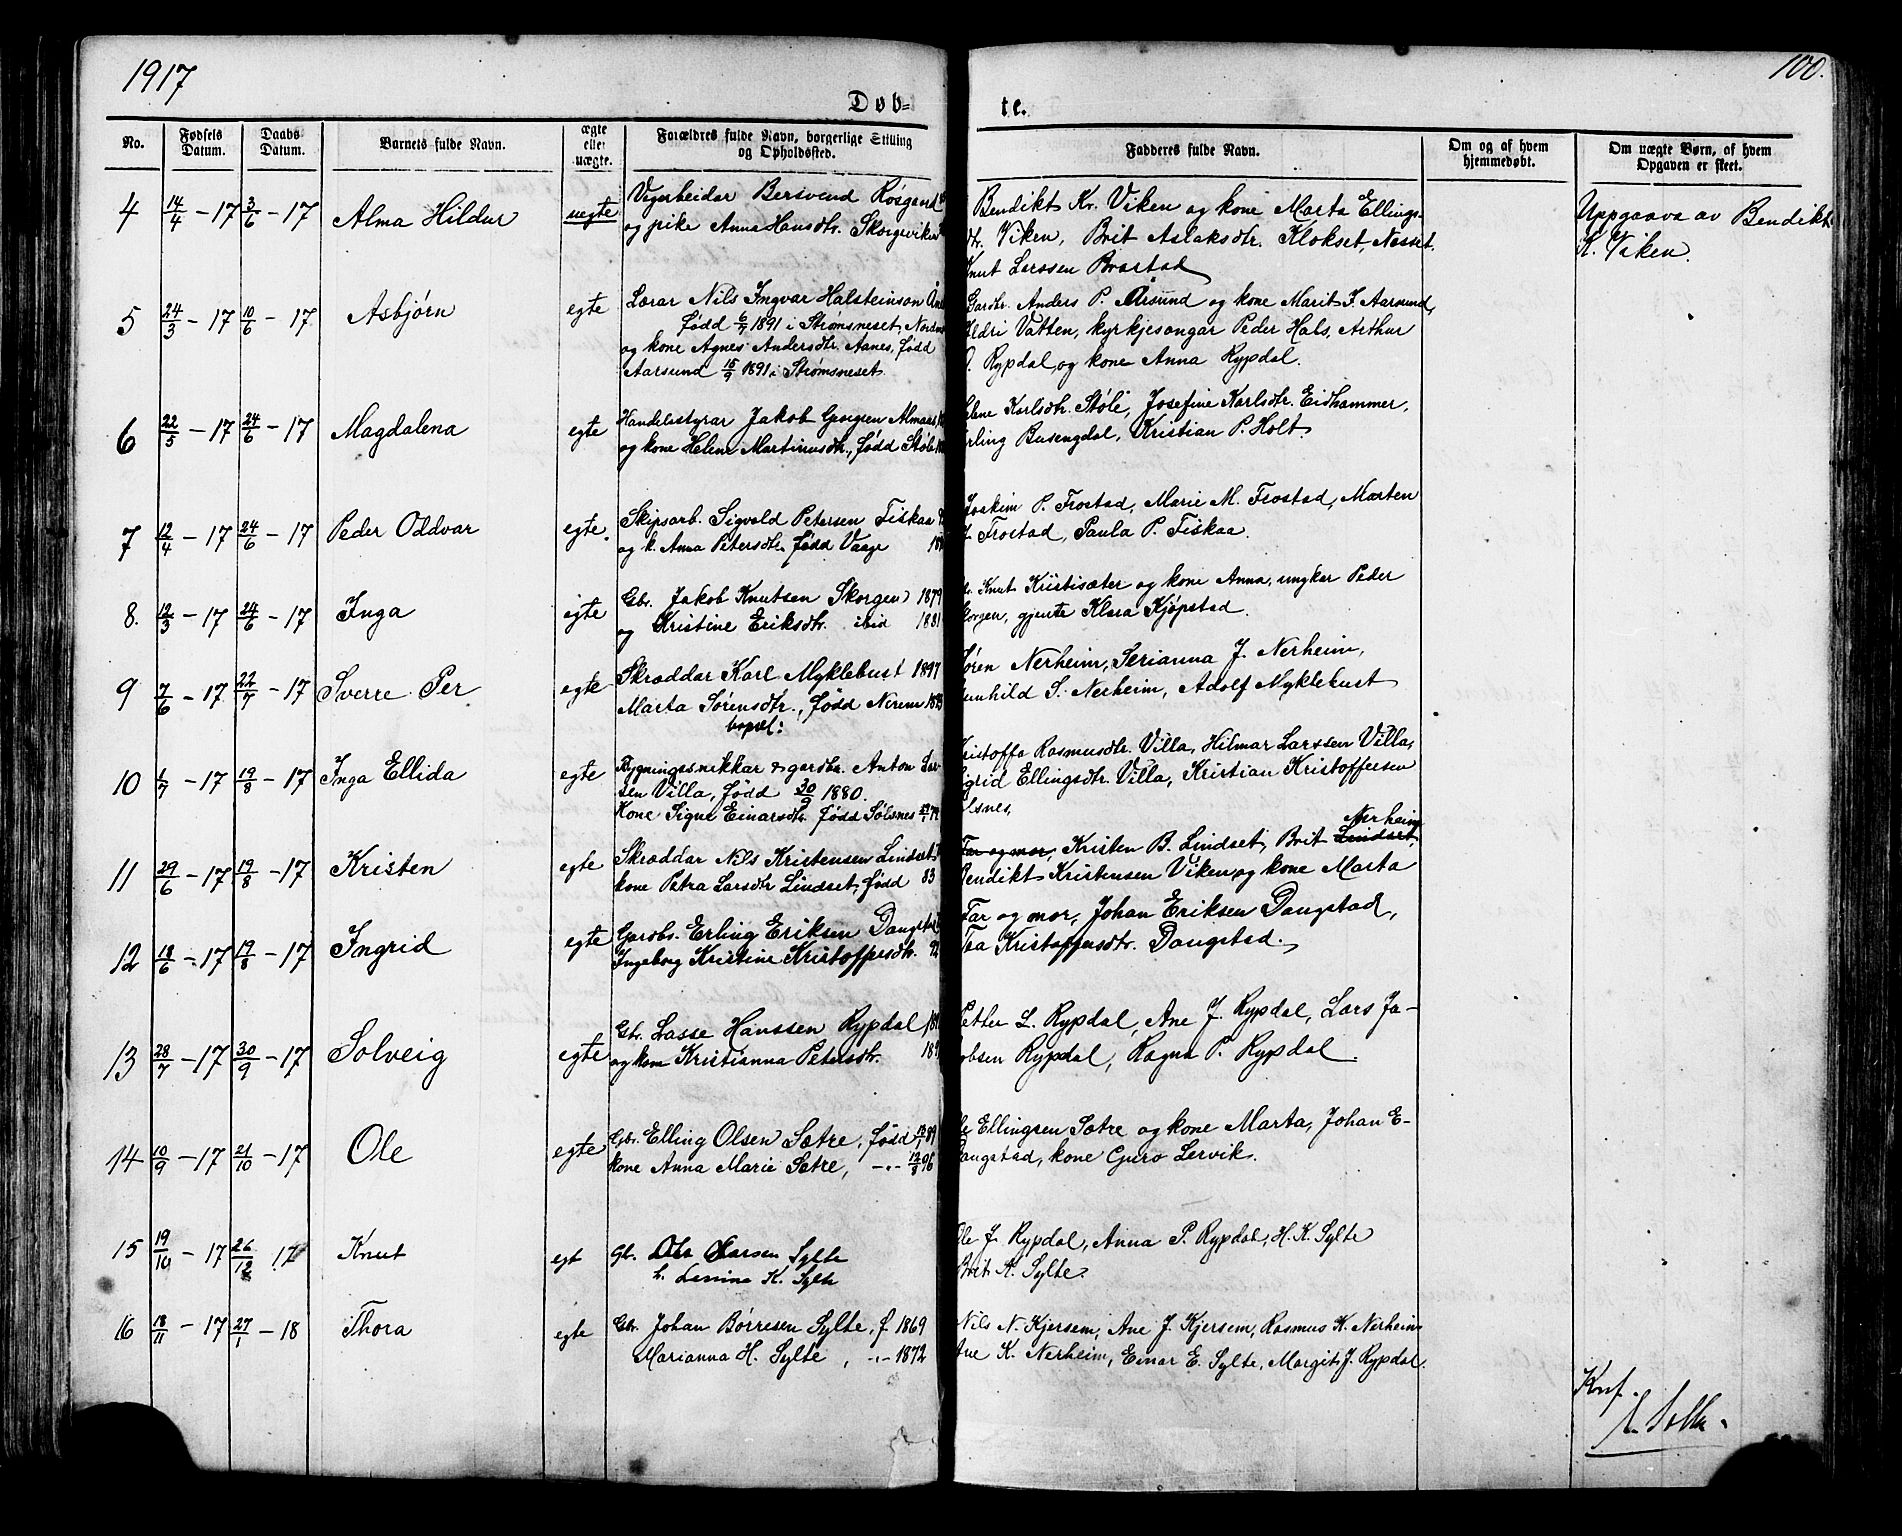 1917
100.
Døb-
te.
No.
Fødsels Datum.
Daabs Datum.
Barnets fulde Navn.
ægte eller uægte.
Forældres fulde Navn, borgerlige Stilling og Opholdsted.
Fadderes fulde Navn.
Om og af hvem hjemmedøbt.
Om uægte Børn, af hvem Opgaven er skeet.
4 14/4 - 17 3/6 - 17 Alma Hildur uegte
Vegarbeidar Bersvend Røsgard
og pike Anna Hansdtr. Skorgeviken
Bendikt Kr. Viken og kone Marta Ellings-
dtr. Viken, Brit Aslaksdtr. Klokset, Nesset,
Knut Larssen Brastad
Uppgaava av Bendikt
K. Viken.
5 24/3 - 17 10/6 - 17 Asbjørn egte
Lærar Nils Ingvar Halsteinson
Fødd 6/7 1891 i Strømsneset,
og kone Agnes Andersdtr. Aanes, fødd
Aarsund 15/9 1891 i Strømsneset
Gardbr. Anders P. Årsund og kone Marit J. Aarsund,
Eldri Vatten, kyrkjesongar Peder Hals, Arthur
Rypdal og kone Anna Rypdal.
6 22/5 - 17 24/6 - 17 Magdalena egte
Handelsstyrar Jakob Georgsen Almaas
og kone Helene Martinusdtr., fødd Støle
Karlsdtr. Støle, Josefine Karlsdtr. Eidhammer,
Erling Busengdal, Kristian P. Holt.
7 12/4 - 17 24/6 - 17 Peder Oddvar egte.
Skipsarb. Sigvald Petersen Fiskaa
og k. Anna Petersdtr. fødd Vaage
Joakim P. Frostad, Marie M. Frostad, Marten
Frostad, Paula P. Fiskaa.
8. 12/3 - 17 24/6 - 17 Inga egte
Gbr. Jakob Knutsen Skorgen 1879
og Kristine Eriksdtr. ibid 1881
Knut Kristisæter og kone Anna, ungkar Peder
Skorgen, gjente Klara Kjøpstad.
9 7/6 - 17 22/7 - 17 Sverre Per egte
Skræddar Karl Myklebust 1897
Marta Sørensdtr., fødd Nerem
bopæl:
Søren Nerheim, Serianna J. Nerheim,
Gunhild S. Nerheim, Adolf Myklebust
10 1/7 - 17 19/8 - 17 Inga Ellida egte
Bygningssnikkar & gardbr. Anton Lar-
sen Villa, fødd 30/9 1880.
Kone Signe Einarsdtr. fødd Sølsnes
Kristoffa Rasmusdtr. Villa, Hilmar Larssen Villa,
Sigrid Ellingsdtr. Villa, Kristian Kristoffersen
Sølsnes.
11 29/6 - 17 19/8 - 17 Kristen egte
Skræddar Nils Kristensen Lindset
kone Petra Larsdtr Lindset, fødd 83
Nerheim
Far og mor, Kristen B. Lindset, Brit Lindset,
Bendikt Kristensen Viken og kone Marta
12 18/6 - 17 19/8 - 17 Ingrid egte
Gardbr. Erling Eriksen Daugstad
Ingeborg Kristine Kristoffersdtr. 92
Far og mor, Johan Eriksen Daugstad,
Kristoffersdtr. Daugstad.
13 28/7 - 17 30/9 - 17 Solveig egte
Gbr. Lasse Hanssen Rypdal
og kone Kristianna Petersdtr.
Petter L. Rypdal, Ane J. Rypdal, Lars Ja-
kobsen Rypdal, Ragna P. Rypdal.
14 10/9 - 17 21/10 - 17 Ole egte
Gbr. Elling Olsen Sætre, fødd 89
kone Anna Marie Sætre, -"- 12/8 96
Ole Ellingsen Sætre og kone Marta, Johan E-
Daugstad, kone Guro Lervik.
15 19/10 - 17 26/12 17 Knut egt
Gb. Ole Larsen Sylte
h. Lenina K. Sylte
Ole J. Rypdal, Anna P. Rypdal, H. K. Sylte
Brit A. Sylte.
16 18/11 - 17 27/1 - 18 Thora egte
Gbr. Johan Børresen Sylte, f. 1869
Marianna H. Sylte, -"- 1872
Nils N. Kjersem, Ane J. Kjersem, Rasmus K. Nerheim
Ane K. Nerheim, Einar E. Sylte, Margit J. Rypdal.
Knf.